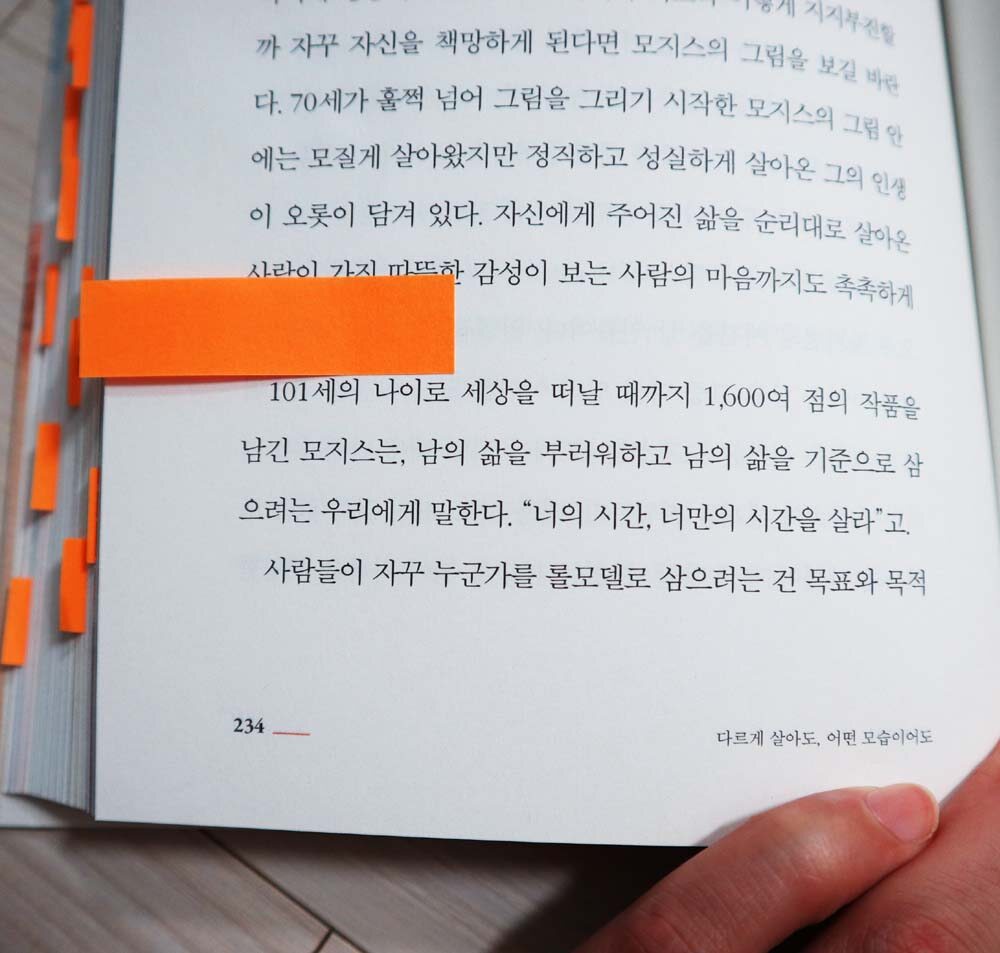 어떻게 지지부진할
까 자꾸 자신을 책망하게 된다면 모지스의 그림을 보길 바란
다. 70세가 훌쩍 넘어 그림을 그리기 시작한 모지스의 그림 안
에는 모질게 살아왔지만 정직하고 성실하게 살아온 그의 인생
이 오롯이 담겨 있다. 자신에게 주어진 삶을 순리대로 살아온
사람이 가진 따뜻한 감성이 보는 사람의 마음까지도 촉촉하게
101세의 나이로 세상을 떠날 때까지 1,600여 점의 작품을
남긴 모지스는, 남의 삶을 부러워하고 남의 삶을 기준으로 삼
으려는 우리에게 말한다. “너의 시간, 너만의 시간을 살라”고.
사람들이 자꾸 누군가를 롤모델로 삼으려는 건 목표와 목적
234
다르게 살아도, 어떤 모습이어도